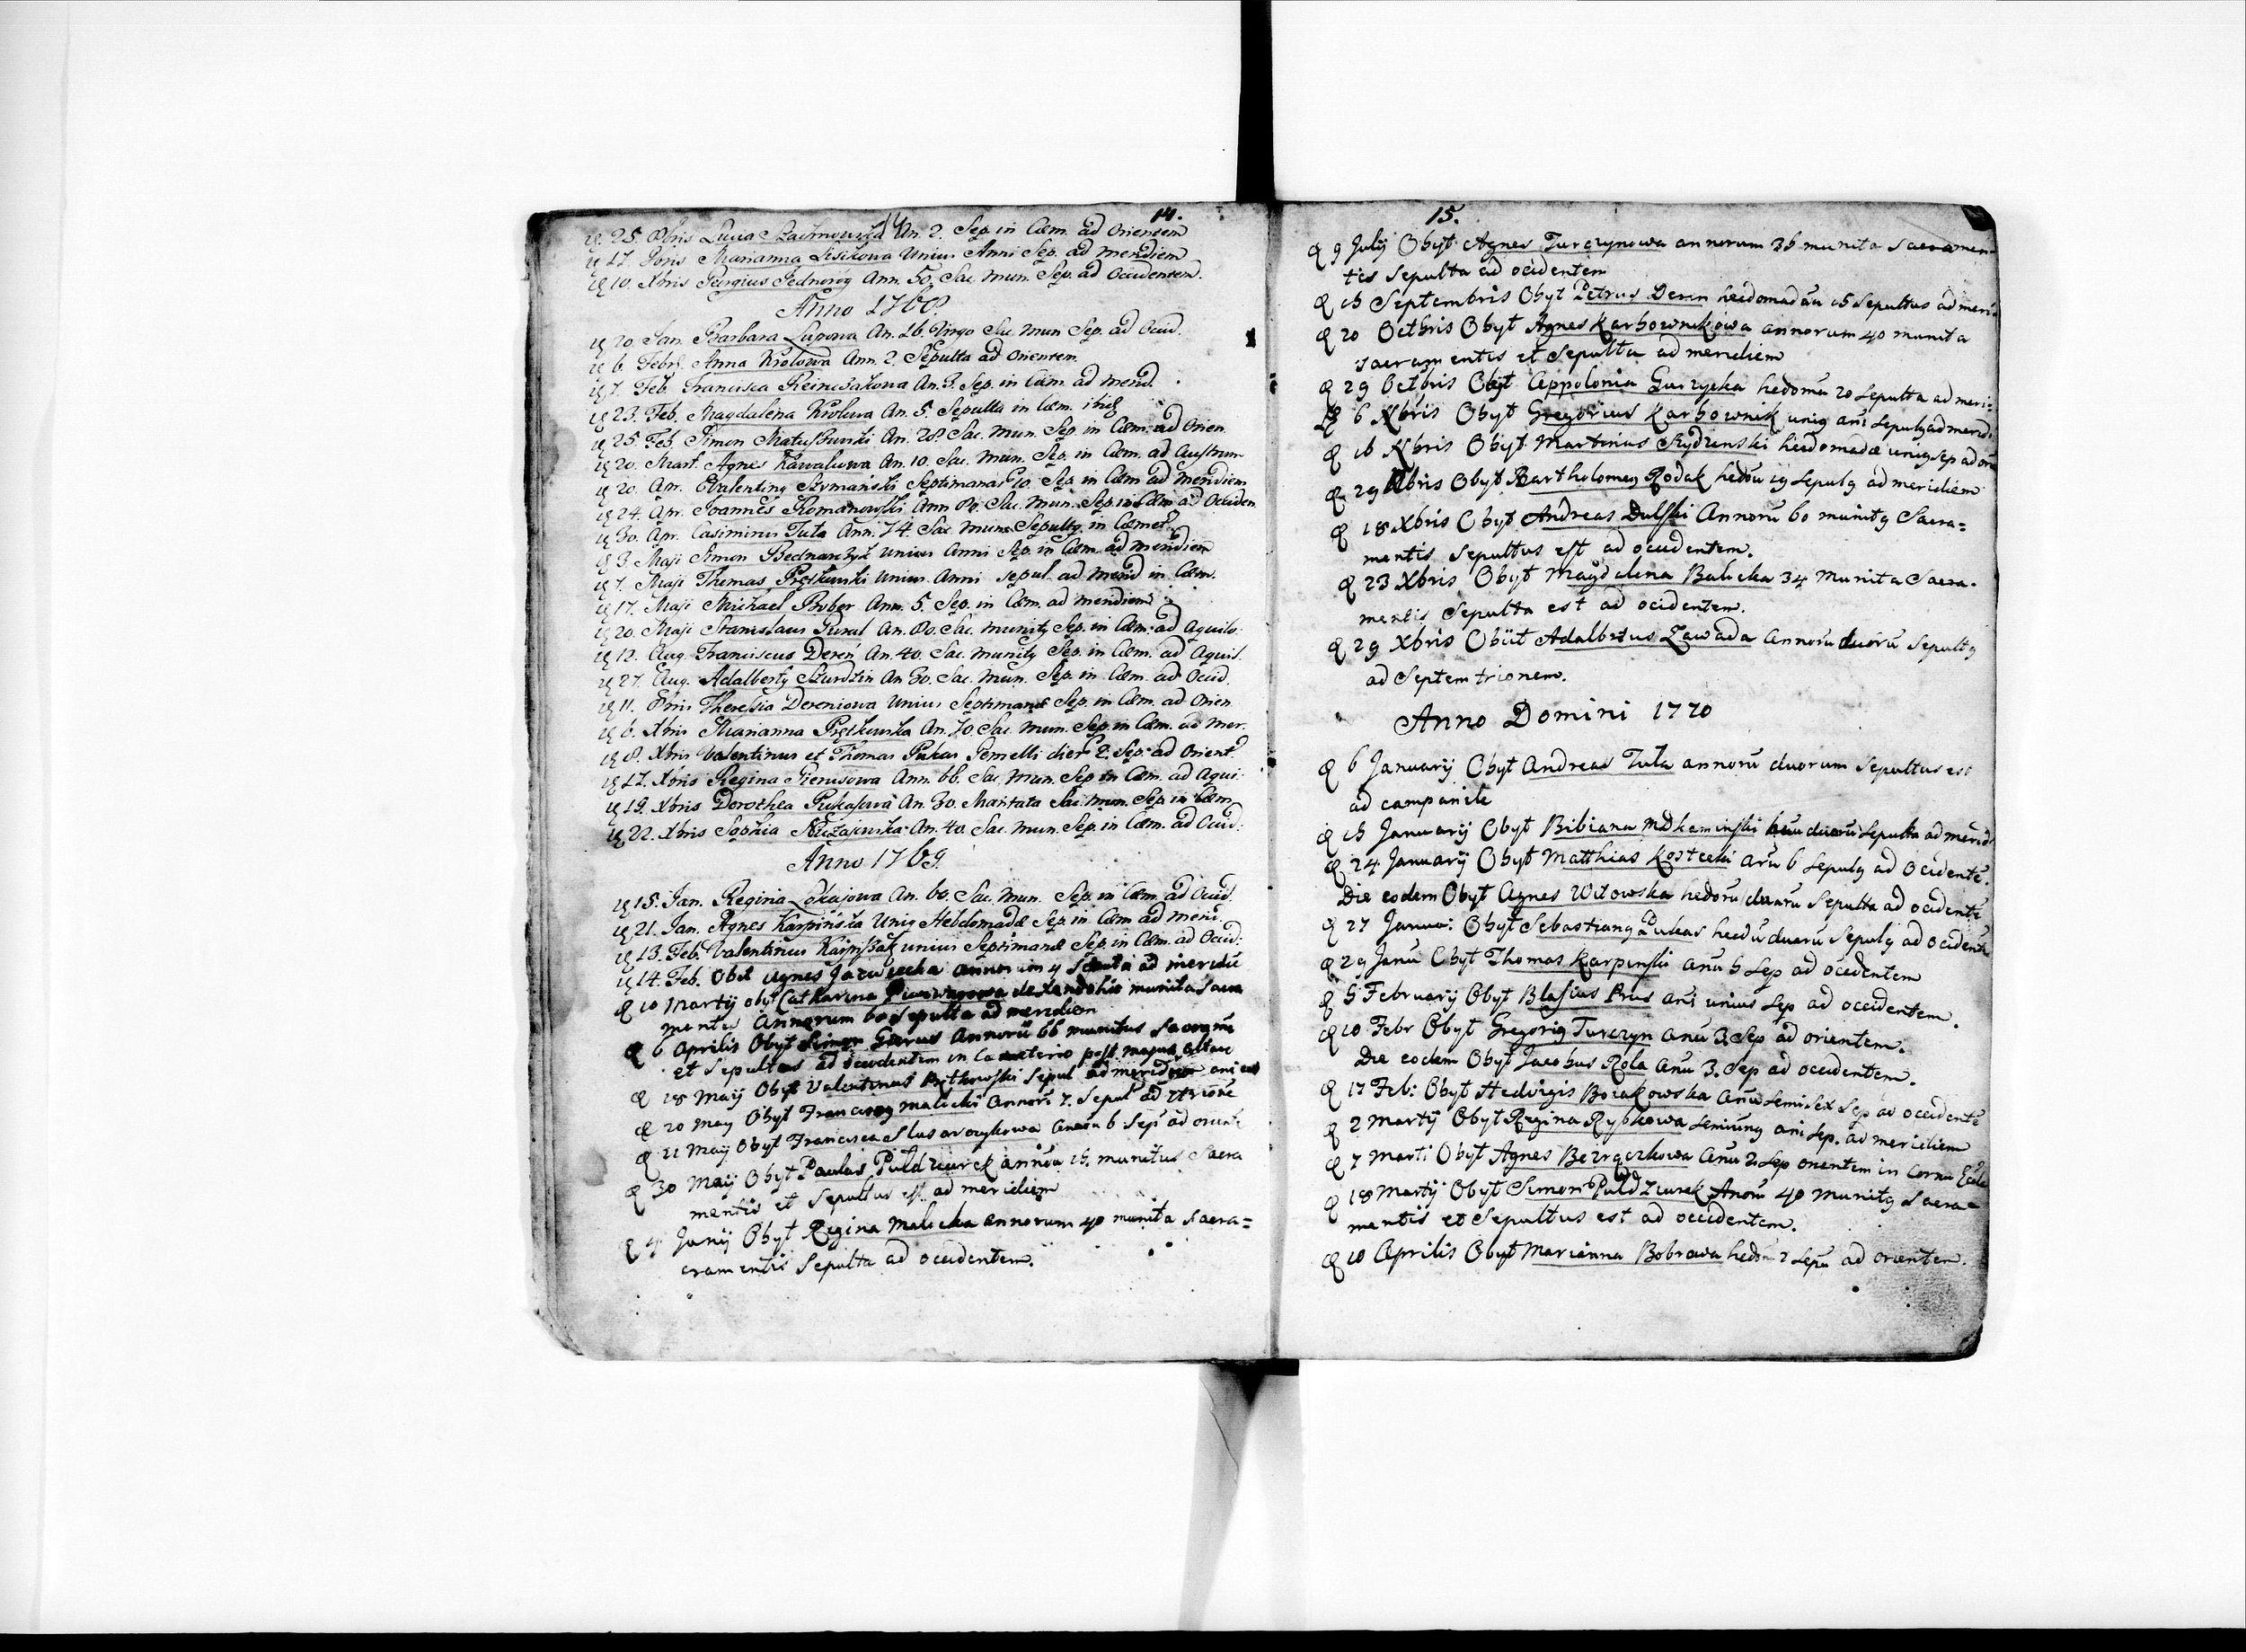 14.
25. 8bris Lucia Szachnowska An. 2. Sep. in Cæm. ad Orientem
17. 9bris Marianna Lisikowa Unius Anni Sep. ad Meridiem
10. Xbris Ann. 50. Sac. Mun. Sep. ad Occidentem.
Anno 1768.
20. Jan. Barbara Lupowa An. 16. Virgo Sac. Mun Sep. ad Occid.
6. Febr. Anna Krolowa Ann. 2. Sepulta ad Orientem.
7. Feb. Francisca An. 3. Sep. in Cæm. ad Merid.
23. Feb. Magdalena Krolowa An. 5. Sepulta in Cæm. ibid
25. Feb. Simon An. 28. Sac. Mun. Sep. in Cæm. ad Orien.
20. Mart. Agnes Kawalowa An. 10. Sac. Mun. Sep. in Cæm. ad Austrum
20. Apr. Valentinq Szymański Septimanar 10. Sep. in Cæm ad Meridiem
24. Apr. Joannes Romanowski Ann 80. Sac. Mun. Sep. in Cæm ad Occiden
30. Apr. Casimirus Tuła Ann. 74. Sac. Mun. Sepultq in Cæmet.
3. Maji Simon Bednarczyk Unius Anni Sep. in Cæm. ad Meridiem
7. Maji Thomas Piętkowski Unius Anni sepul. ad Merid in Cæm.
17. Maji Michael Bober Ann. 5. Sep. in Cæm. ad Meridiem
20. Maji Stanislaus Gural An. 80. Sac. Munitq Sep. in Cæm. ad Aquilo.
12. Aug. Franciscus Dereń An. 40. Sac. Munitq Sep. in Cæm. ad Aquil.
27. Aug. Adalbertq An. 30. Sac. Mun. Sep. in Cæm. ad Occid.
11. 8bris Theresia Dereniowa Unius Septimanæ Sep. in Cæm. ad Orien.
6. Xbris Marianna Piętkowska An. 70. Sac. Mun. Sep. in Cæm. ad Mer.
8. Xbris Valentinus et Thomas Pukas Gemelli dier 2. Sep. ad Orient.
17. Xbris Regina Ann. 66. Sac. Mun. Sep. in Cæm. ad Aqui.
19. Xbris Dorothea An. 30. Maritata Sac. Mun. Sep. in Cæm.
22. Xbris Sophia An. 40. Sac. Mun. Sep. in Cæm. ad Occid.
Anno 1769.
15. Jan. Regina Lokajowa An. 60. Sac. Mun. Sep. in Cæm. ad Occid.
21. Jan. Agnes Karpińska Uniq Hebdomadæ Sep. in Cæm ad Meri.
13. Feb. Valentinus unius Septimanæ Sep. in Cæm. ad Occid.
14. Feb. Obit Agnes ad meridie
10 Martij obyt Catharina munita Sacra
mentis Annorum 60 Sepulta ad meridiem
6 Aprilis Obyt Simon Annorū 66 munitus Sacrame
et Sepultus ad occidentem in Cæmeterio post majus altare
18 Maij Obyt Valentinus Piętkowski Sepul ad meridiem
20 May Obyt Franciszq Malicki Annorū 7. Sepul ad
21 Maij Obyt Francisca Slusarczykowa 6 Sep ad
30 Maij Obyt Paulus Puldziurek annoru 15. munitus Sacra
mentis et Sepultus est ad meridiem
4 Junij Obyt Regina Malicka annorum 40 munita Sacra=
cramentis Sepulta ad occidentem.
15.
9 Julij Obyt Agnes Turczynowa annorum 36 munita Sacramen
tis Sepulta ad ocidentem
15 Septembris Obyt Petrus Deren hecdomadāu 15 Sepultus ad meri
20 Octbris Obyt Agnes Karbownikowa annorum 40 munita
sacramentis et Sepulta ad meridiem
29 Octbris Obyt Appolonia Gurzycka hedomū 20 Sepulta ad meri=
6 Xbris Obyt Gregorius Karbownik uniq ani Sepulq ad merid.
16 Xbris Obyt Martinus Rydzenski hecdomadæ uniq sep ad
29 Xbris Obyt Bartholomeq Rodak hedōu 19 Sepulq ad meridiem
18 Xbris Obyt Andreas Dulski Annorū 60 munitq Sacra=
mentis Sepultus est ad occidentem.
23 Xbris Obyt Maydalena Balicka 34 Munita Sacra.
mentis Sepulta est ad ocidentem.
29 Xbris Obiit Adalbrtus Zawada annorū duorū Sepultq
ad Septemtrionem.
Anno Domini 1770
6 Januarij Obyt Andreas Tuła annorū duorum Sepultus est
ad campanile
15 Januarij Obyt Bibiana duorū Sepulta ad merid
24 Januarij Obyt Matthias Kostecki arū 6 Sepulq ad Ocidentē.
Die eodem Obyt Agnes Witowska hedorū duarū Sepulta ad ocidentē
27 Janua: Obyt Sebastianq Lukas hecdū duarū Sepulq ad Ocidentē
29 Janū Obyt Thomas Karpinski anū 5 Sep ad ocedentem
5 February Obyt Blasius Prus ani unius Sep ad occidentem.
10 Febr Obyt Gregoriq Turczyn anū 3. Sep ad orientem.
Die eodem Obyt Jacobus Rola anū 3. Sep ad occidentem.
17 Feb: Obyt Hedvigis Borakowska anū semisex Sep ad occidentē
2 Martij Obyt Regina Rybkowa semiunq ani Sep. ad meridiem
7 Marti Obyt Agnes anū 2. Sep orientem in Cornu Eccle
18 Martij Obyt Simon Puldziurek Anorū 40 munitq Sacra=
mentis et Sepultus est ad occidentem.
10 Aprilis Obyt Marianna Bobrowa hedōm 2 Sepū ad orientem.